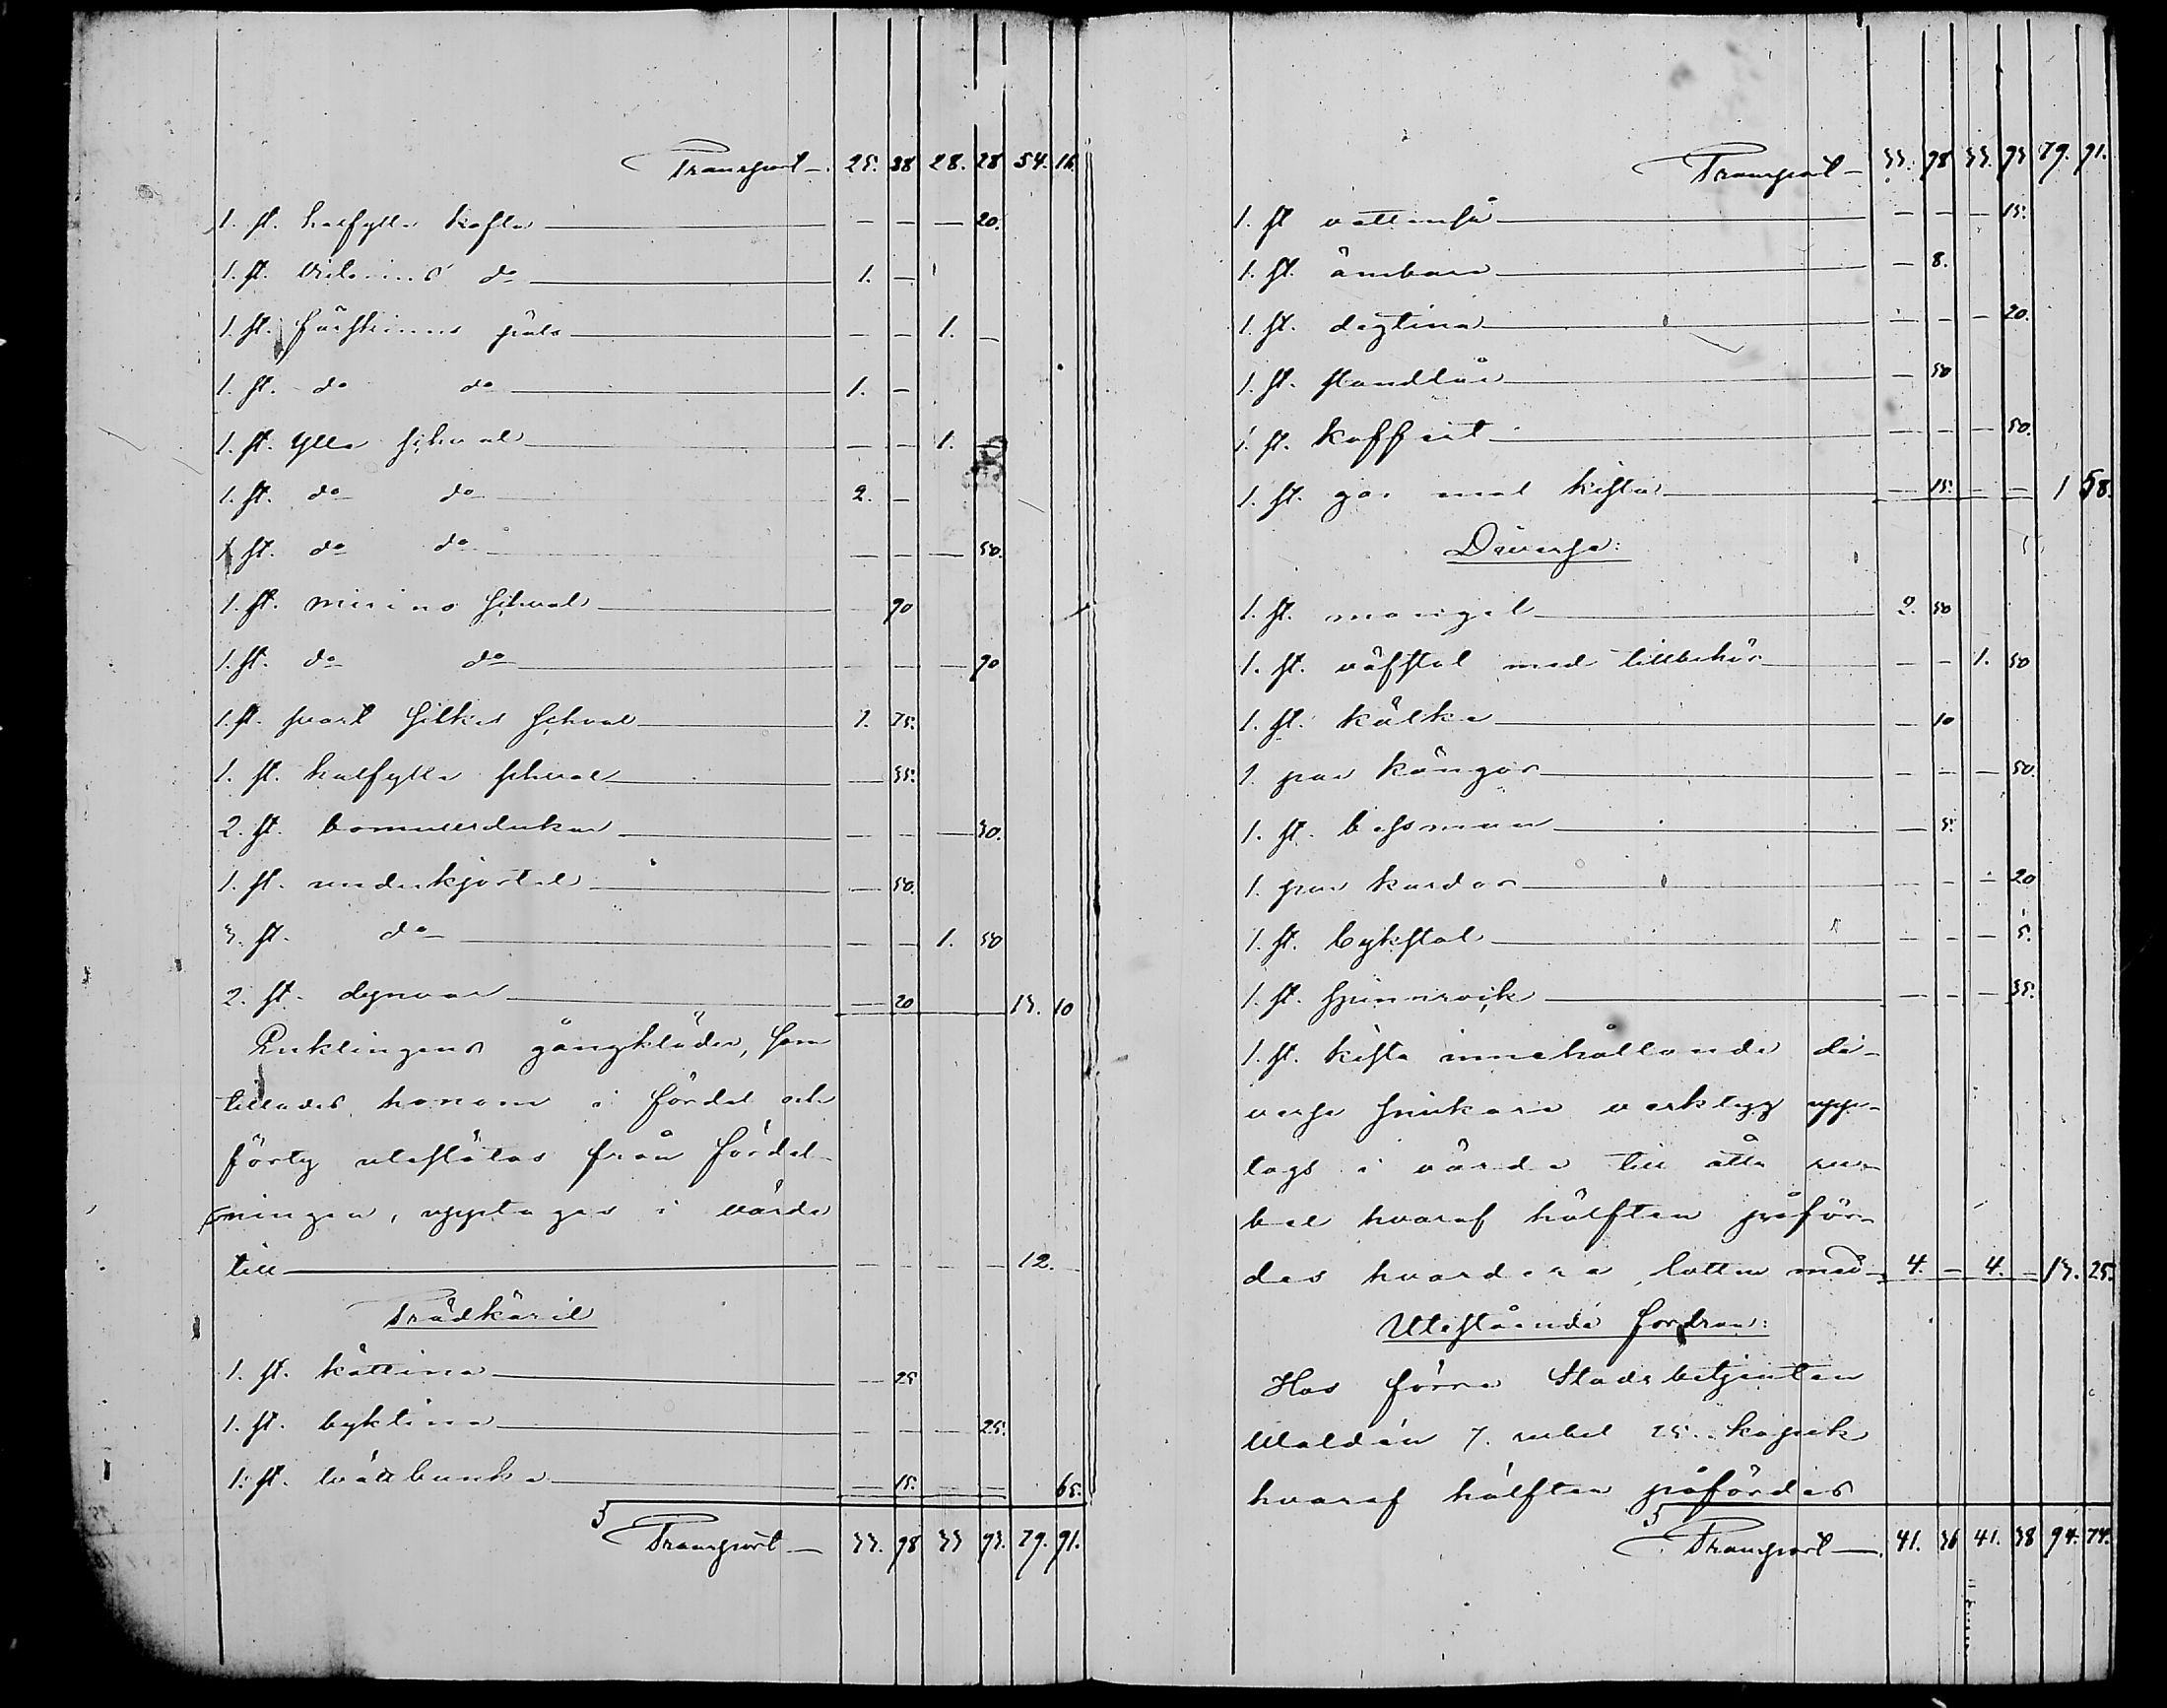 Transport — 25. 38 28. 28 54. 16.
1. st. halfylle kofta — — — 20.
1. st. do 1. —
1. st. fårskinns päls — — 1. —
1. st. do do 1. —
1. st. ylle schal — — 1. —
1. st. do do 2. —
1 st. do do — — — 50.
1. st. merino schal 90
1. st. do do — — — 90
1. st. svart silkes schal 1. 75.
1. st. halfylle schal — 35.
2. st. bomullsdukar — — — 30.
1. st. underkjortel — 50.
3. st. do — — 1. 50
2. st. dynvar — 20 13. 10
Enklingens gångkläder, som
tillades honom i fördel och
förty uteslötos från fördel-
ningen, upptagas i värde
till — — — — 12. —
Trädkäril
1. st. kättina — 25
1. st. byktina — — — 25.
1. st. tvättbunke — 15. — — 65.
Transport — 33. 98 33 93. 79. 91.
Transport — 33. 98 33. 93 79. 91.
1. st vattenså — — — 15.
1. st. ämbare — 8.
1. st. degtina — — — 20.
1. st. standtår — 50
1. st. koffert — — — 50.
1. st. gammal kista — 15. — — 1 58.
Diverse:
1. st. mangel 2. 50
1. st. väfstol med tillbehör — — 1. 50
1. st. kälke — 10
1. par kängor — — — 50.
1. st. bessman — 5.
1. par kardor — — — 20
1. st. bykstol — — — 5.
1. st. spinnrock — — — 35.
1. st. kista innehållande di-
verse snickare verktyg upp-
togs i värde till åtta ru-
bel hvaraf hälften påför-
des hvardera lotten med 4. — 4. — 13. 25.
Utestående fordran:
Hos förre Stadsbetjenten
Waldén 7. rubel 25. kopek
hvaraf hälften påfördes
Transport — 41. 36 41. 38 94. 74.